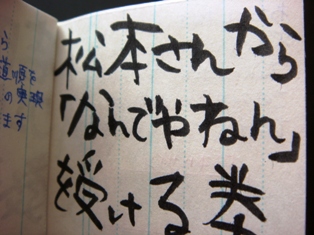 松本さんから
「なんでやねん」
を授ける巻
ら
道順を
の実現
ます